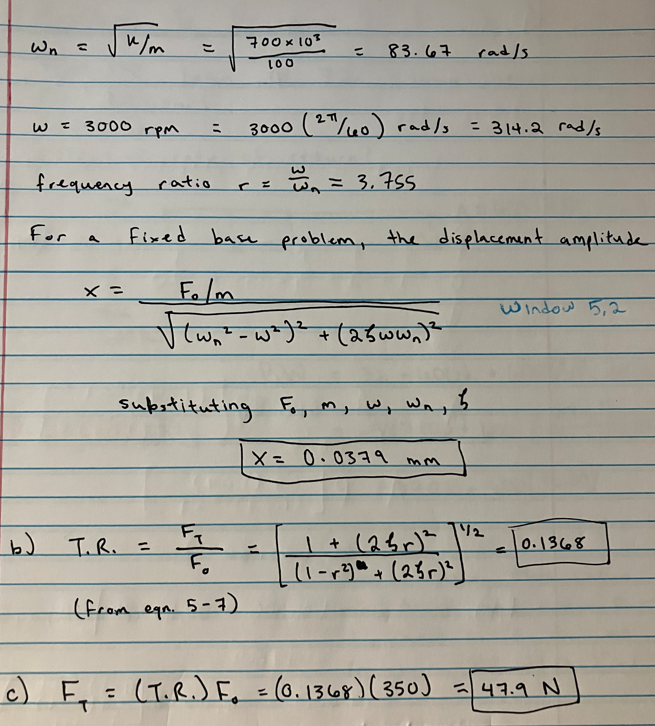 ωn = √k/m = √700×10³/100 = 83.67 rad/s
ω = 3000 rpm = 3000 (2π/60) rad/s = 314.2 rad/s
frequency ratio r = ω/ωn = 3.755
For a fixed base problem, the displacement amplitude
x = F₀/m / √(ωn² - ω²)² + (2ζωωn)² Window 5.2
substituting F₀, m, ω, ωn, ζ
X = 0.0379 mm
b) T.R. = F_T/F₀ = [1 + (2ζr)² / (1-r²)² + (2ζr)²]^1/2 = 0.1368
(from eqn. 5-7)
c) F_T = (T.R.) F₀ = (0.1368)(350) = 47.9 N